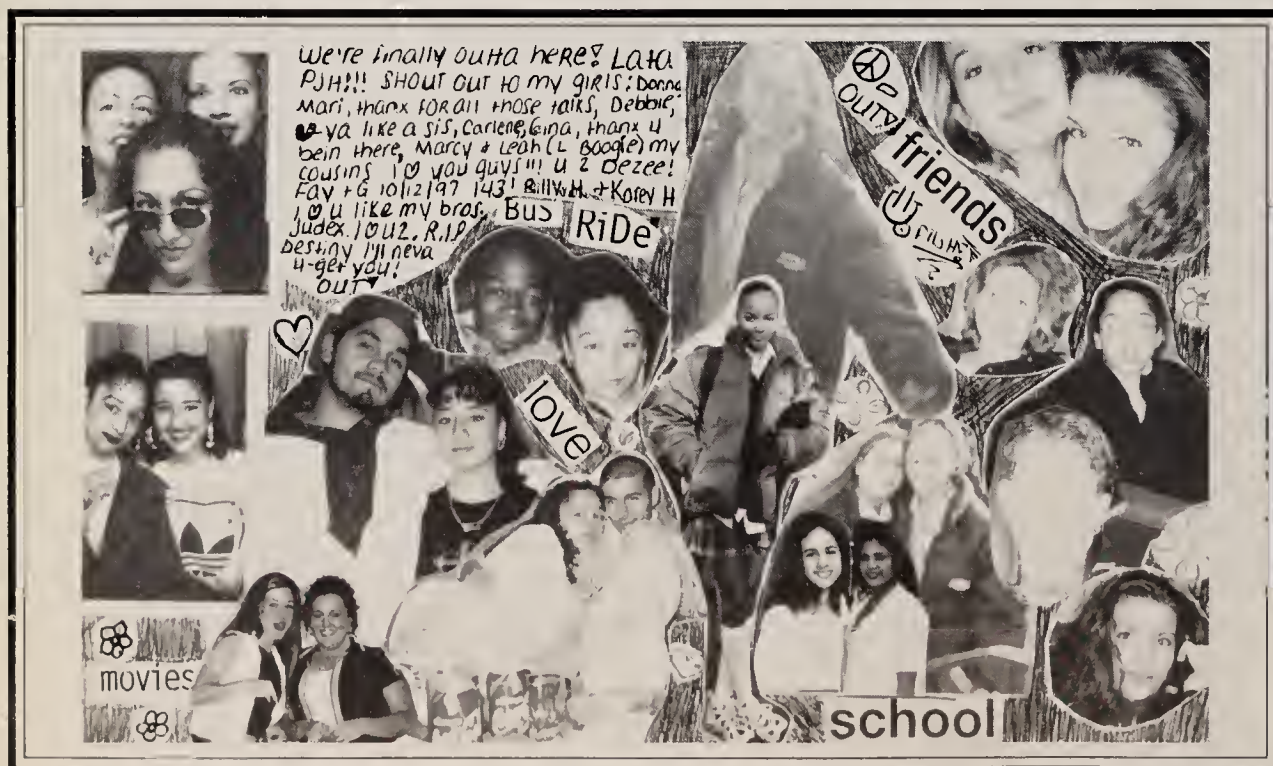 We're finally outta here! Lata
PJH!!! SHOUT OUT to my girls: Donna
Mari, thanx FOR all those talks, Debbie,
♥ ya like a sis, Carlene, Gina, thanx 4
bein there, Marcy & Leah (L Boogie) my
cousins I ♥ you guys!!! u 2 Dezee!
Fav + G 10/12/97 143! Billy M. + Korey H
I ♥ u like my bros.
Judex. I ♥ U2. R.I.P.
Destiny I'll neva
4-get you!
OUT
BUS RiDe
OUTY
friends
love
movies
school